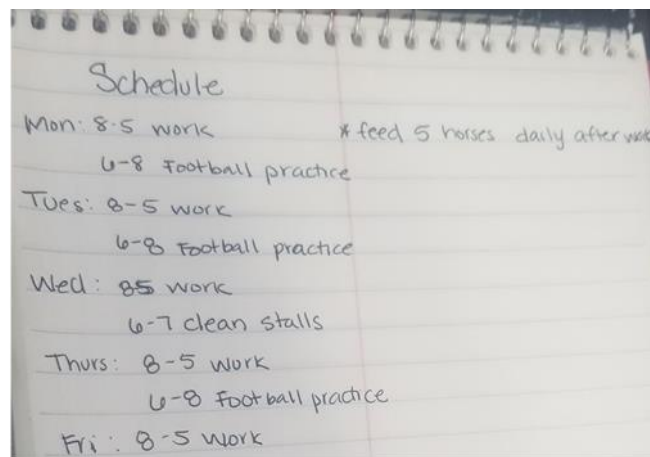 Schedule
Mon: 8-5 work * feed 5 horses daily after work
6-8 Football practice
Tues: 8-5 work
6-8 Football practice
Wed: 85 work
6-7 clean stalls
Thurs: 8-5 work
6-8 Football practice
Fri: 8-5 work